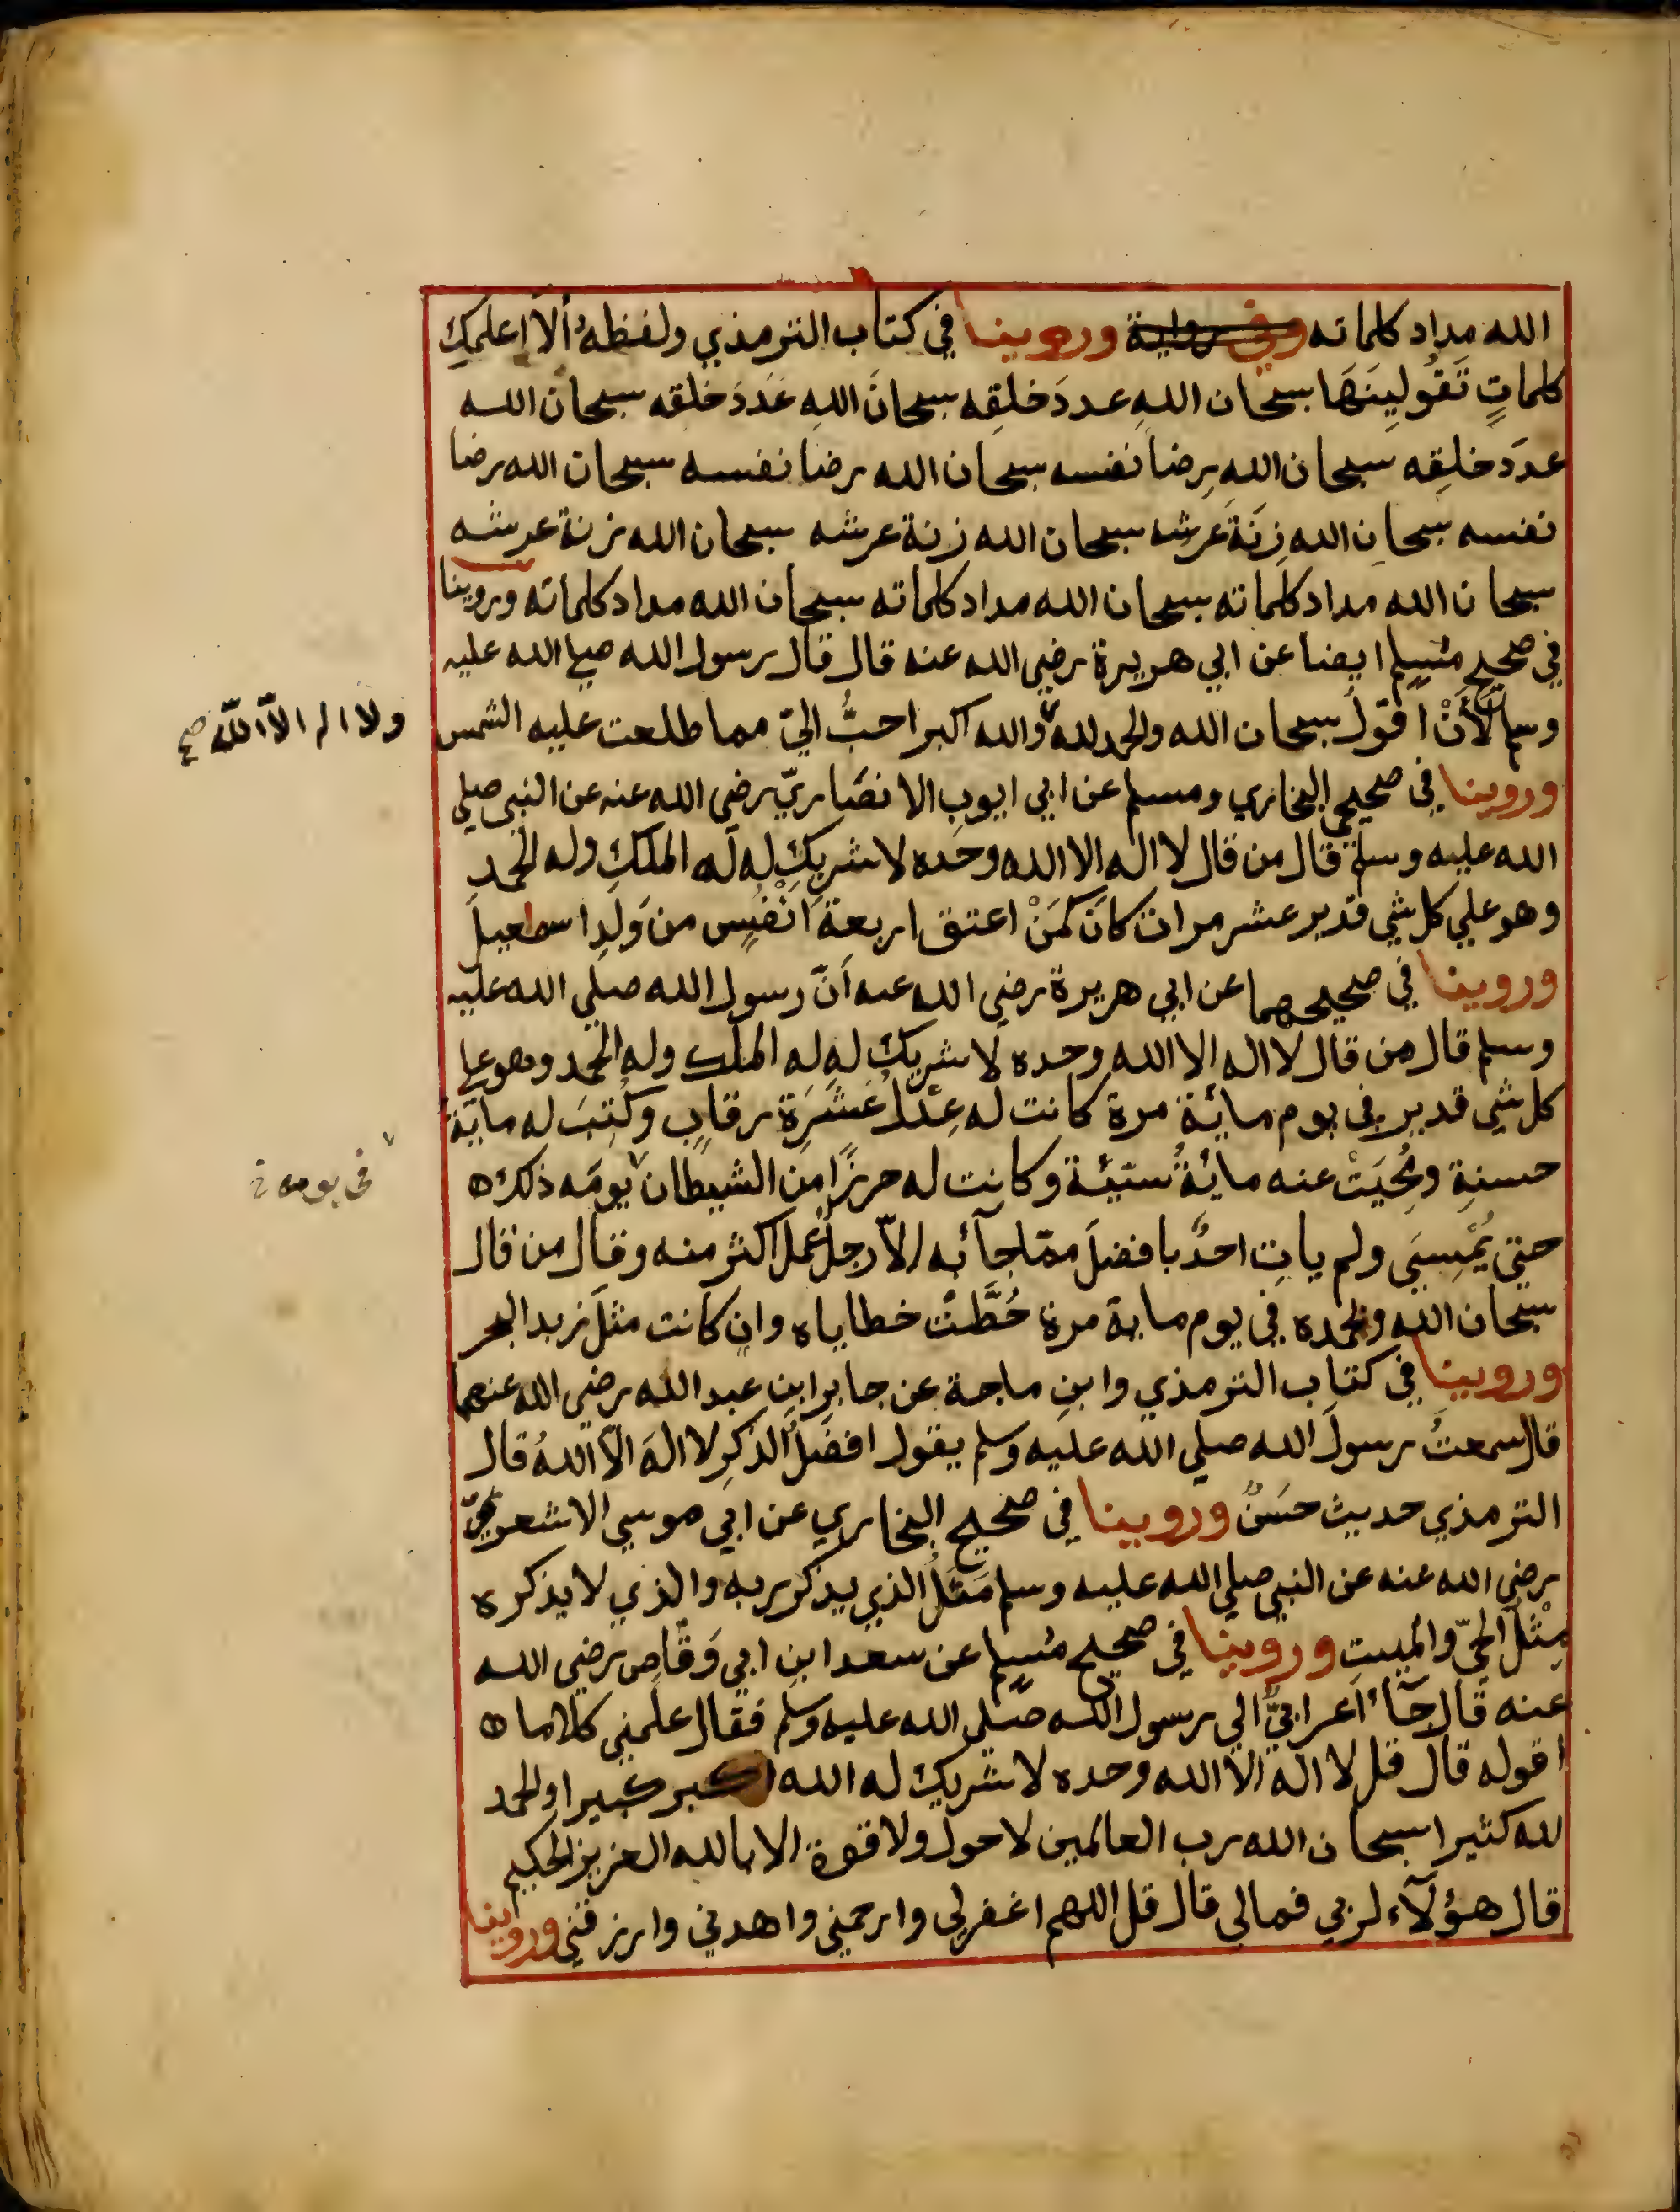 الله مداد كلماته وفي رواية وروينا في كتاب الترمذي ولفظهُ ألَا اعلمكِ
كلماتٍ تَقُولِينَهَا سبحان اللهِ عددَ خلقِه سبحانَ اللهِ عَدَدَ خلقه سبحان الله
عددَ خلقِه سبحان اللهِ رِضا نفسه سبحان الله رضا نفسه سبحان الله رضا
نفسه سبحان الله زِنَةَ عرشه سبحان الله زنة عرشه سبحان الله زنة عرشه
سبحان الله مداد كلماته سبحان الله مداد كلماته سبحان الله مداد كلماته وروينا
في صحيح مسلم ايضا عن ابي هريرة رضي الله عنه قال قال رسول الله صلي الله عليه
وسلم لَأَنْ اقولَ سبحان الله والحمد لله والله اكبر احبُّ اليّ مما طلعت عليه الشمس
ولا اله الاّ اللّٰه صح
وروينا في صحيحي البخاري ومسلم عن ابي ايوب الانصَاريّ رضي الله عنه عن النبي صلي
الله عليه وسلم قال من قال لا اله الا الله وحده لا شريك له له الملك وله الحمد
وهو علي كل شي قدير عشر مرات كانَ كَمَنْ اعتق اربعة اَنْفُسٍ من وَلَدِ اسمعيل
وروينا في صحيحهما عن ابي هريرة رضي الله عنه اَنّ رسول الله صلي الله عليه
وسلم قال من قال لا اله الا الله وحده لا شريك له له الملك وله الحمد وهو علي
كل شي قدير في يوم مائة مرة كانت له عِدْلُ عَشَرَة رقاب وكُتِبَ له ماية
حسنةٍ ومُحِيَتْ عنه مائةُ سيّئة وكانت له حرزًا من الشيطان يومَه ذلك
في يومه
حتي يُمْسِيَ ولم ياتِ احدٌ بافضلَ ممّا جآء به الاّ رجلٌ عمل اكثر منه وقال من قال
سبحان الله وبحمده في يوم ماية مرة حُطَّتْ خطاياه وان كانت مثلَ زبد البحر
وروينا في كتاب الترمذي وابنِ ماجة عن جابر ابنِ عبد الله رضي الله عنهما
قال سمعتُ رسولَ الله صلي الله عليه وسلم يقول افضلُ الذكرِ لا الهَ الاّ اللهُ قال
الترمذي حديث حسَنٌ وروينا في صحيح البخاري عن ابي موسي الاشعريّ
رضي الله عنه عن النبي صلي الله عليه وسلم مَثَلُ الذي يذكر ربه والذي لا يذكره
مِثْلُ الحيّ والميتِ وروينا في صحيح مسلم عن سعد ابنِ ابي وَقّاصٍ رضي الله
عنه قال جآء اَعرابيٌّ الي رسول الله صلي الله عليه وسلم فقال علمني كلاما
اقوله قال قل لا اله الا الله وحده لا شريك له الله اكبر كبيرا والحمد
لله كثيرا سبحان الله رب العالمين لا حول ولا قوة الا بالله العزيز الحكيم
قال هؤلآء لربي فما لي قال قل اللهم اغفر لي وارحمني واهدني وارزقني وروينا